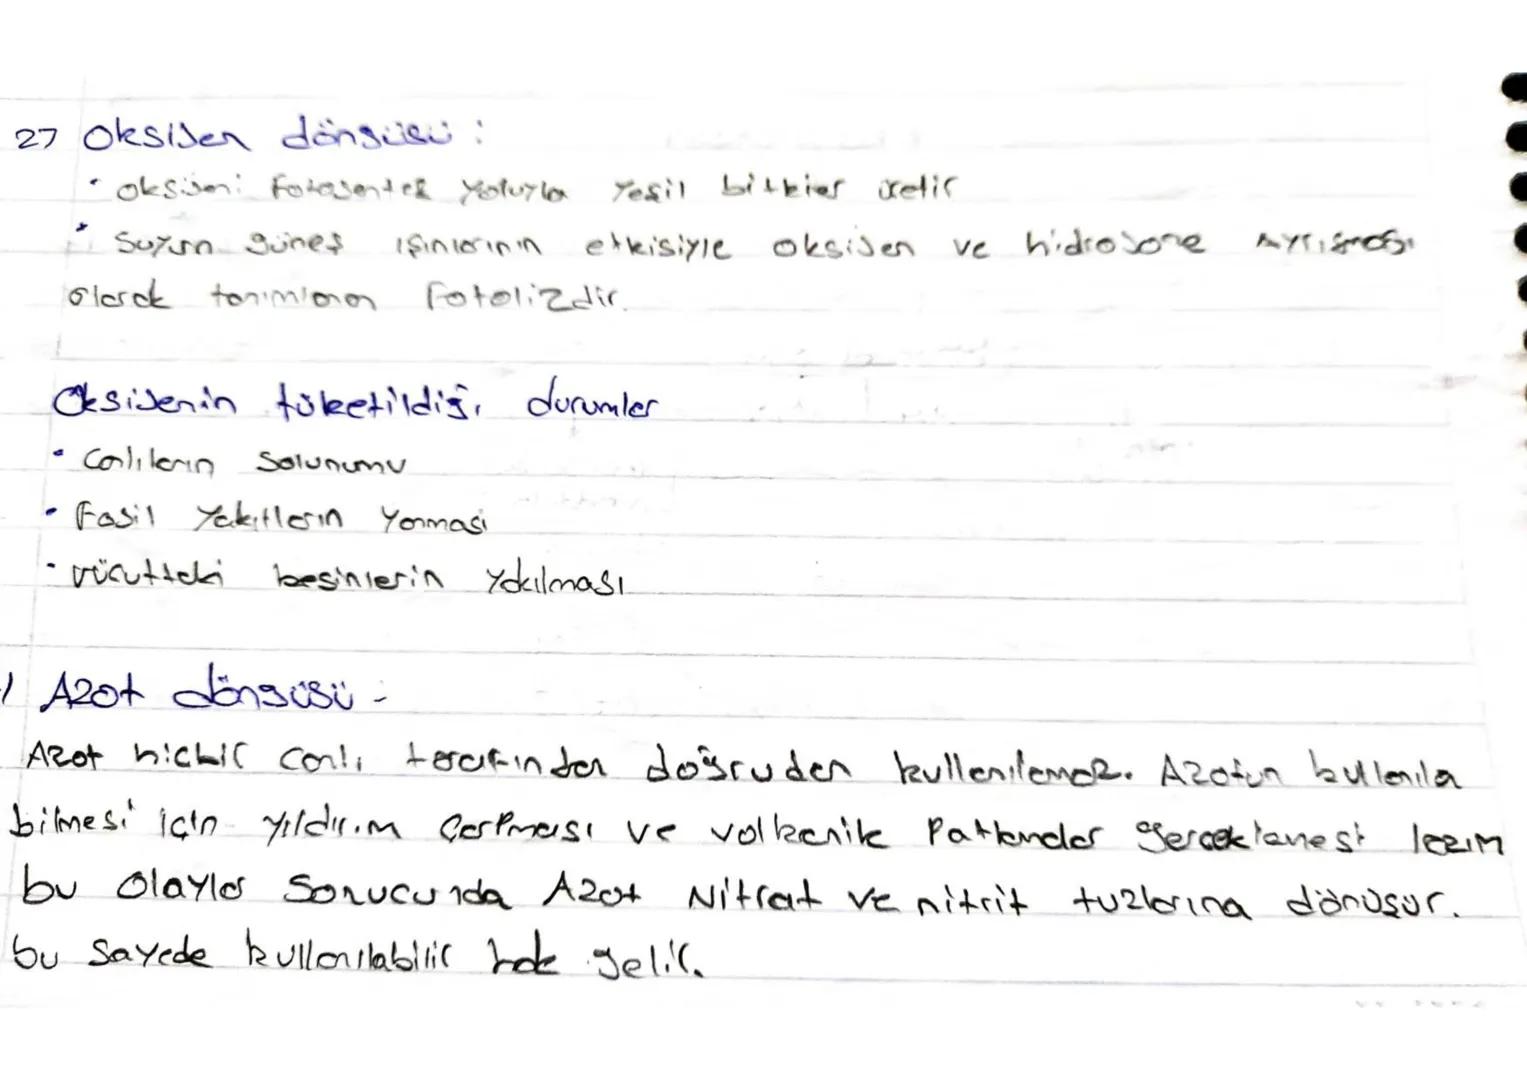 27 Oksijen döngüsü :
• Oksijeni fotosentez yoluyla yeşil bitkiler üretir
• Suyun güneş ışınlarının etkisiyle oksijen ve hidrojene ayrışması
olarak tanımlanan fotolizdir.
Oksijenin tüketildiği durumlar
• Canlıların Solunumu
• Fosil yakıtların yanması
• vücuttaki besinlerin yakılması
Azot döngüsü -
Azot hiçbir canlı tarafından doğrudan kullanılamaz. Azotun kullanıla
bilmesi için yıldırım çarpması ve volkanik Patlamalar gerçeklemesi lazım
bu olaylar Sonucunda Azot Nitrat ve nitrit tuzlarına dönüşür.
bu sayede kullanılabilir hale gelir.